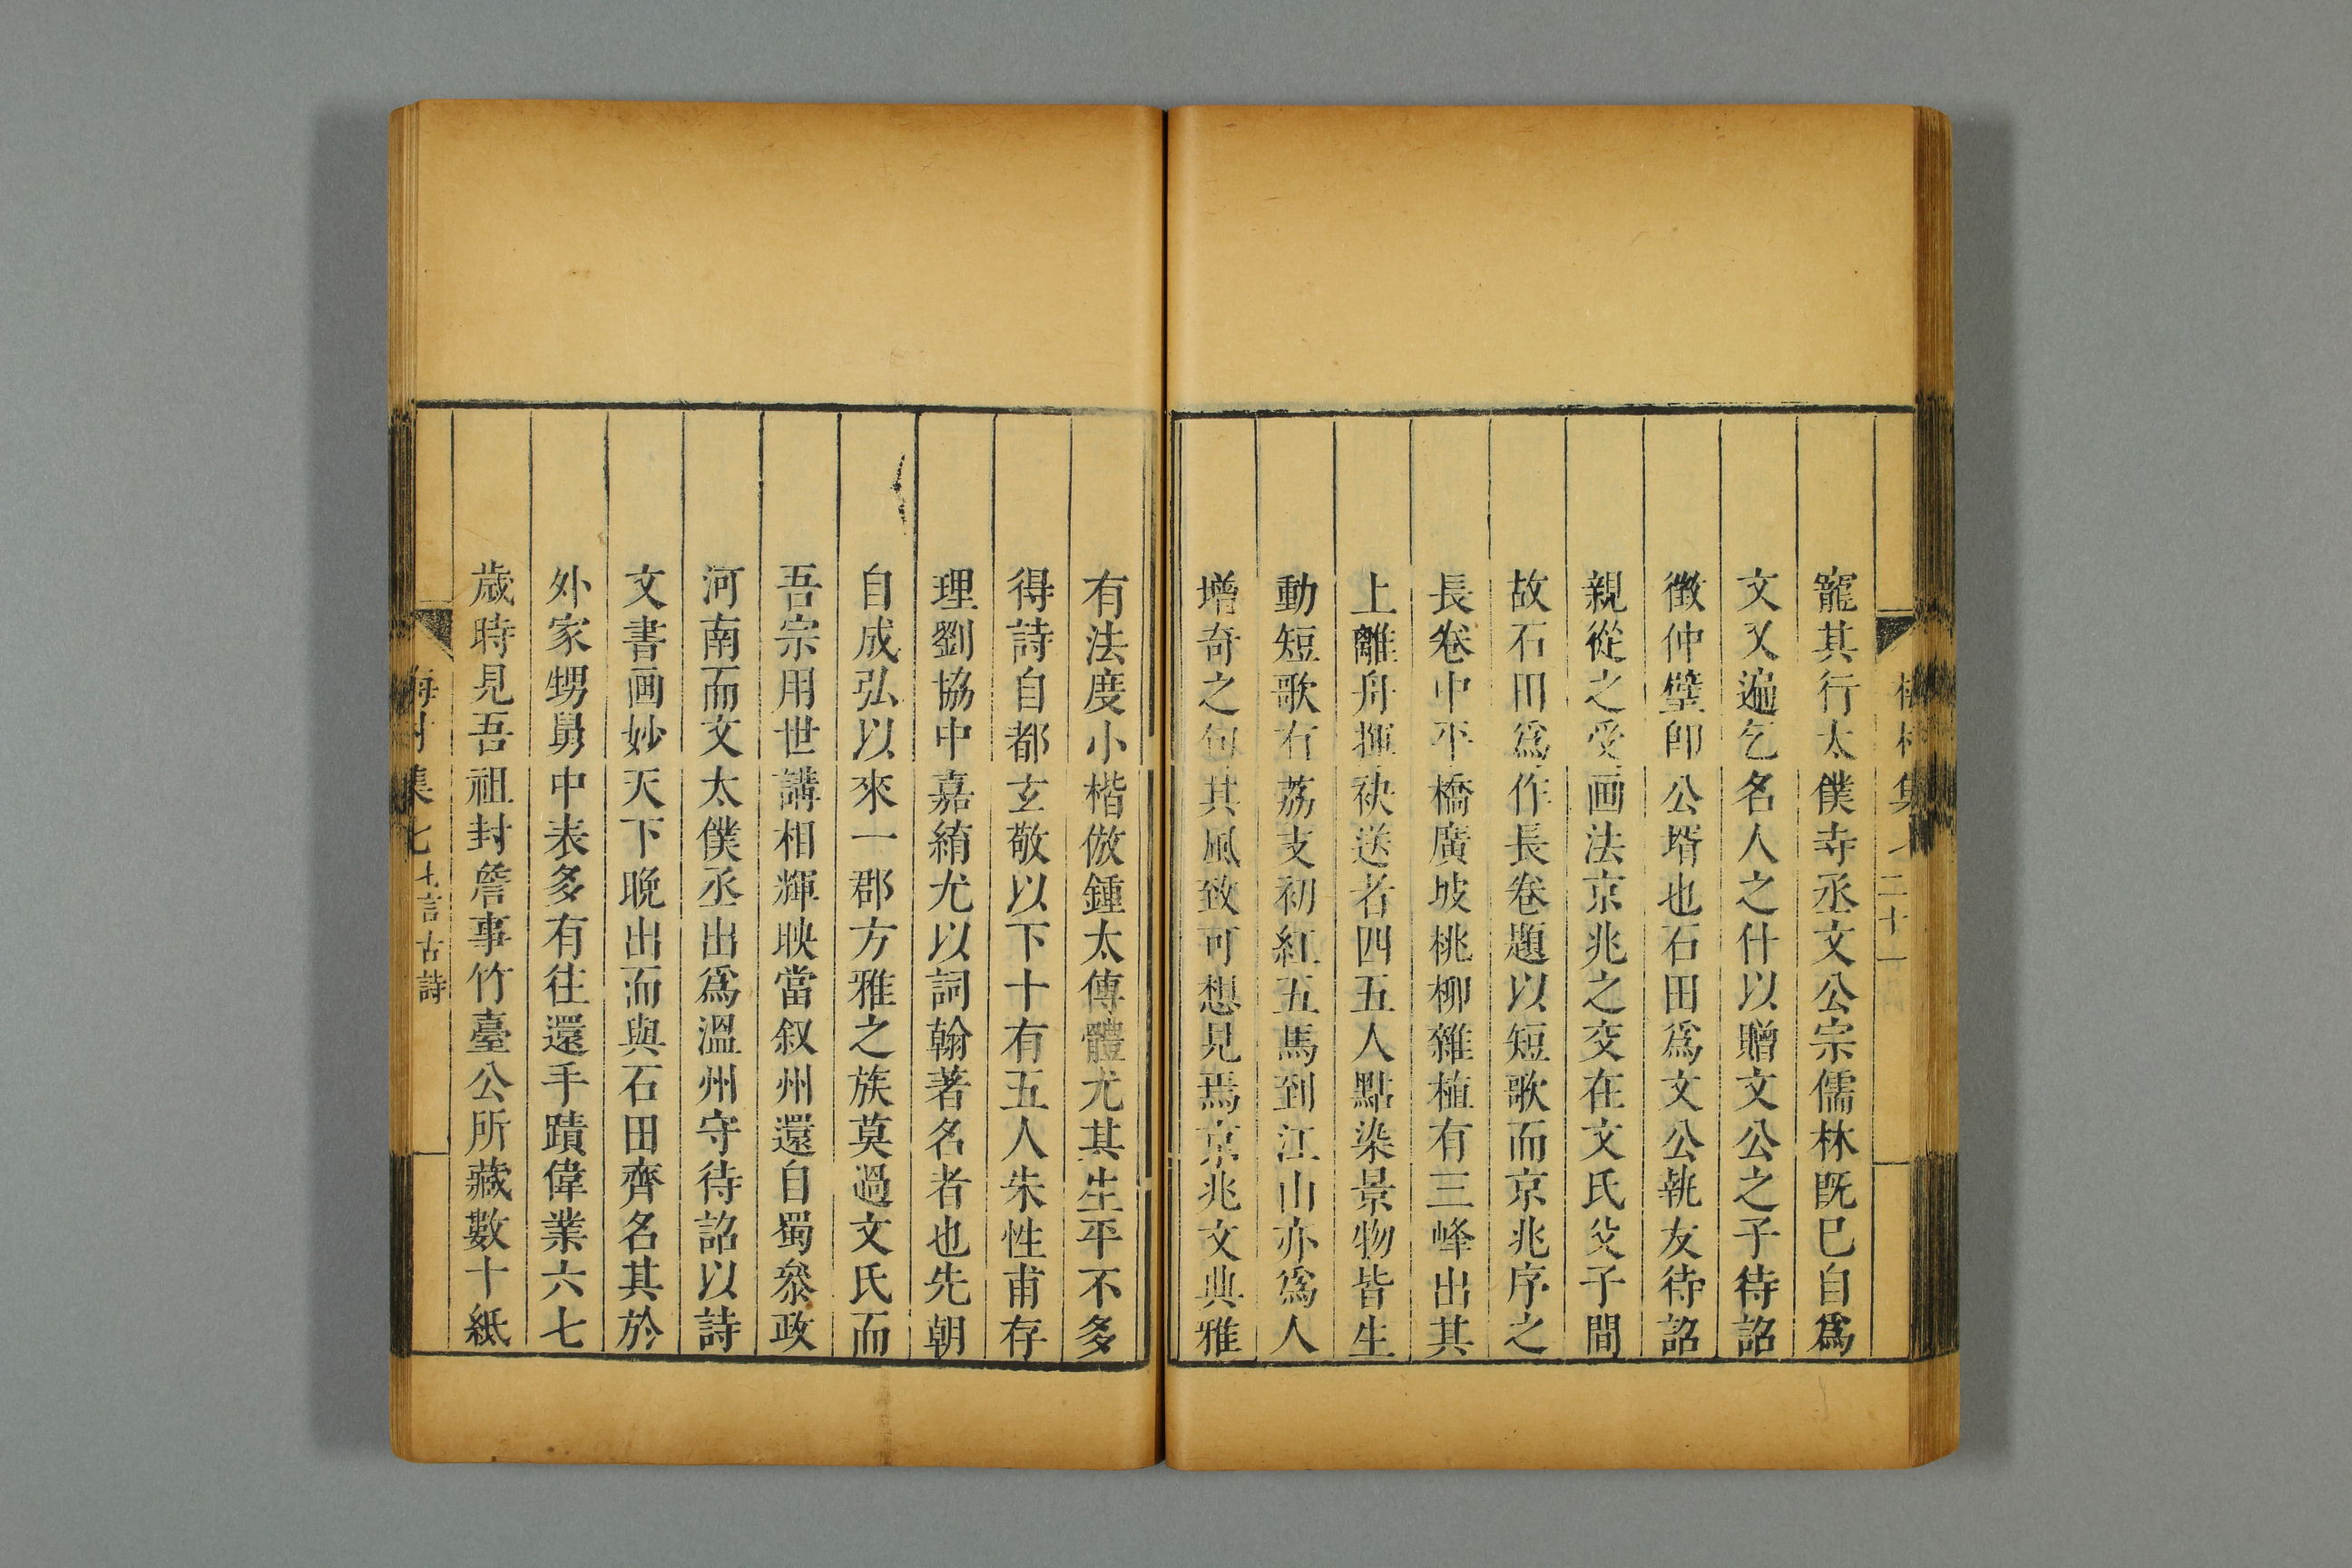 寵其行太僕寺丞文公宗儒林旣巳自爲
文又遍乞名人之什以贈文公之子待詔
徵仲壁卽公壻也石田爲文公執友待詔
親從之受画法京兆之交在文氏父子間
故石田爲作長卷題以短歌而京兆序之
長卷中平橋廣坡桃柳雜植有三峰出其
上離舟揮袂送者四五人點染景物皆生
動短歌有荔支初紅五馬到江山亦爲人
增奇之句其風致可想見焉京兆文典雅
二十一
有法度小楷倣鍾太傅體尤其生平不多
得詩自都玄敬以下十有五人朱性甫存
理劉協中嘉䋭尤以詞翰著名者也先朝
自成弘以來一郡方雅之族莫過文氏而
吾宗用世講相輝映當叙州還自蜀叅政
河南而文太僕丞出爲溫州守待詔以詩
文書画妙天下晚出而與石田齊名其於
外家甥舅中表多有往還手蹟偉業六七
歲時見吾祖封詹事竹臺公所藏數十紙
梅村集 七 七言古詩